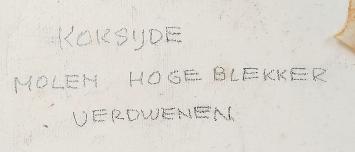 KOKSYDE
MOLEN HOGE BLEKKER
VERDWENEN